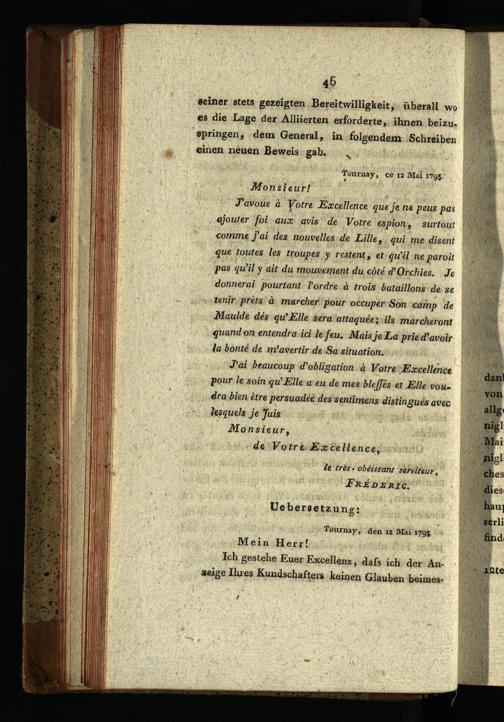 46
seiner stets gezeigten Bereitwilligkeit, überall wo
es die Lage der Alliierten erforderte, ihnen beizu-
springen, dem General, in folgendem Schreiben
einen neuen Beweis gab.
Tournay, ce 12 Mai 1793.
Monsieur!
J'avoue à Votre Excellence que je ne peus pas
ajouter foi aux avis de Votre espion, surtout
comme j'ai des nouvelles de Lille, qui me disent
que toutes les troupes y restent, et qu'il ne paroit
pas qu'il y ait du mouvement du côté d'Orchies. Je
donnerai pourtant l'ordre à trois bataillons de se
tenir prèts à marcher pour occuper Son camp de
Maulde dès qu'Elle sera attaquée; ils marcheront
quand on entendra ici le feu. Mais je La prie d'avoir
la bonté de m'avertir de Sa situation.
J'ai beaucoup d'obligation à Votre Excellence
pour le soin qu'Elle a eu de mes blessés et Elle vou-
dra bien être persuadée des sentimens distingués avec
lesquels je suis
Monsieur,
de Votre Excellence,
le très-obéissant serviteur,
FRÉDERIC.
Uebersetzung:
Tournay, den 12 Mai 1793
Mein Herr!
Ich gestehe Euer Excellenz, dass ich der An-
zeige Ihres Kundschafters keinen Glauben beimes-
dank
von
allge
nigl
Mai
nigl
ches
dies
haup
serli
find
12te